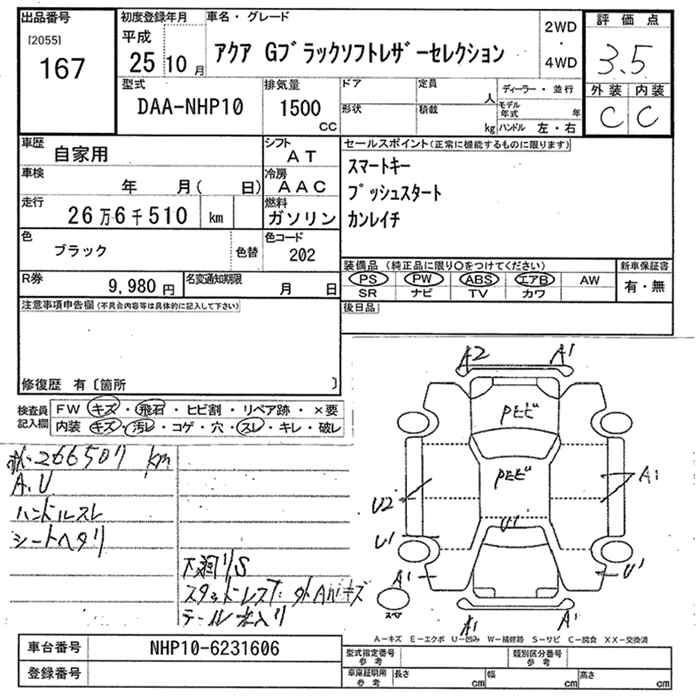 出品番号
[2055]
167
初度登録年月
平成
25年10月
車名・グレード
アクア Gブラックソフトレザーセレクション
2WD
・
4WD
評価点
3.5
外装 内装
C C
型式
DAA-NHP10
排気量
1500
CC
ドア
形状
定員
人
積載
kg
ディーラー・並行
モデル年式 年
ハンドル 左・右
車歴
自家用
シフト
AT
車検
年 月( 日)
冷房
AAC
走行
26万6千510
km
燃料
ガソリン
色
ブラック
色替
色コード
202
R券
9,980円
名変通知期限
月 日
セールスポイント(正常に機能するものに限ります)
スマートキー
プッシュスタート
カンレイチ
装備品(純正品に限り○をつけてください)
PS PW ABS エアB AW
SR ナビ TV カワ
新車保証書
有・無
後日品
注意事項申告欄(不具合内容等は具体的に記入して下さい)
修復歴 有〔箇所 〕
検査員記入欄
FW キズ・飛石・ヒビ割・リペア跡・×要
内装 キズ・汚レ・コゲ・穴・スレ・キレ・破レ
266507 km
A.U
ハンドルスレ
シートヘタリ
下廻りS
テール水入り
A2 A1
PとビPとビ
A1
U2
U1
U1
A1
U1
スペア
A1 A1
A－キズ E－エクボ U－凹み W－補修跡 S－サビ C－腐食 XX－交換済
車台番号
NHP10-6231606
登録番号
型式指定番号
参考
類別区分番号
参考
車庫証明用
参考
長さ cm
幅 cm
高さ cm